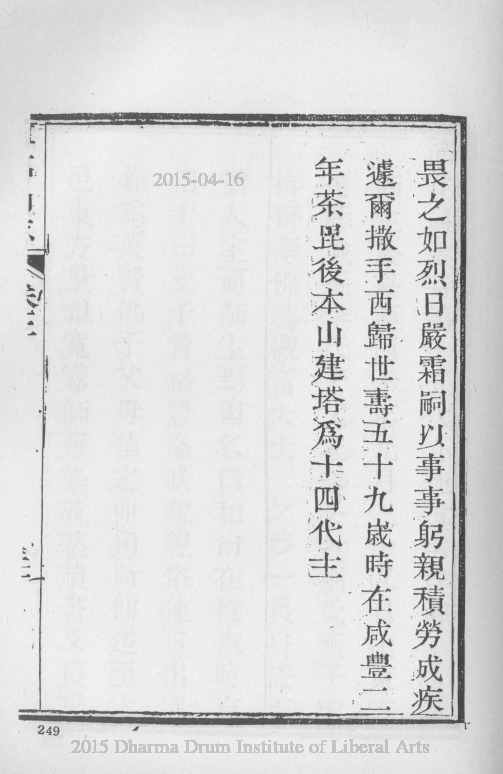 畏之如烈日嚴霜嗣以事事躬親積勞成疾
遽爾撒手西歸世壽五十九歲時在咸豐二
年荼毘後本山建塔為十四代主
2015-04-16
249
2015 Dharma Drum Institute of Liberal Arts